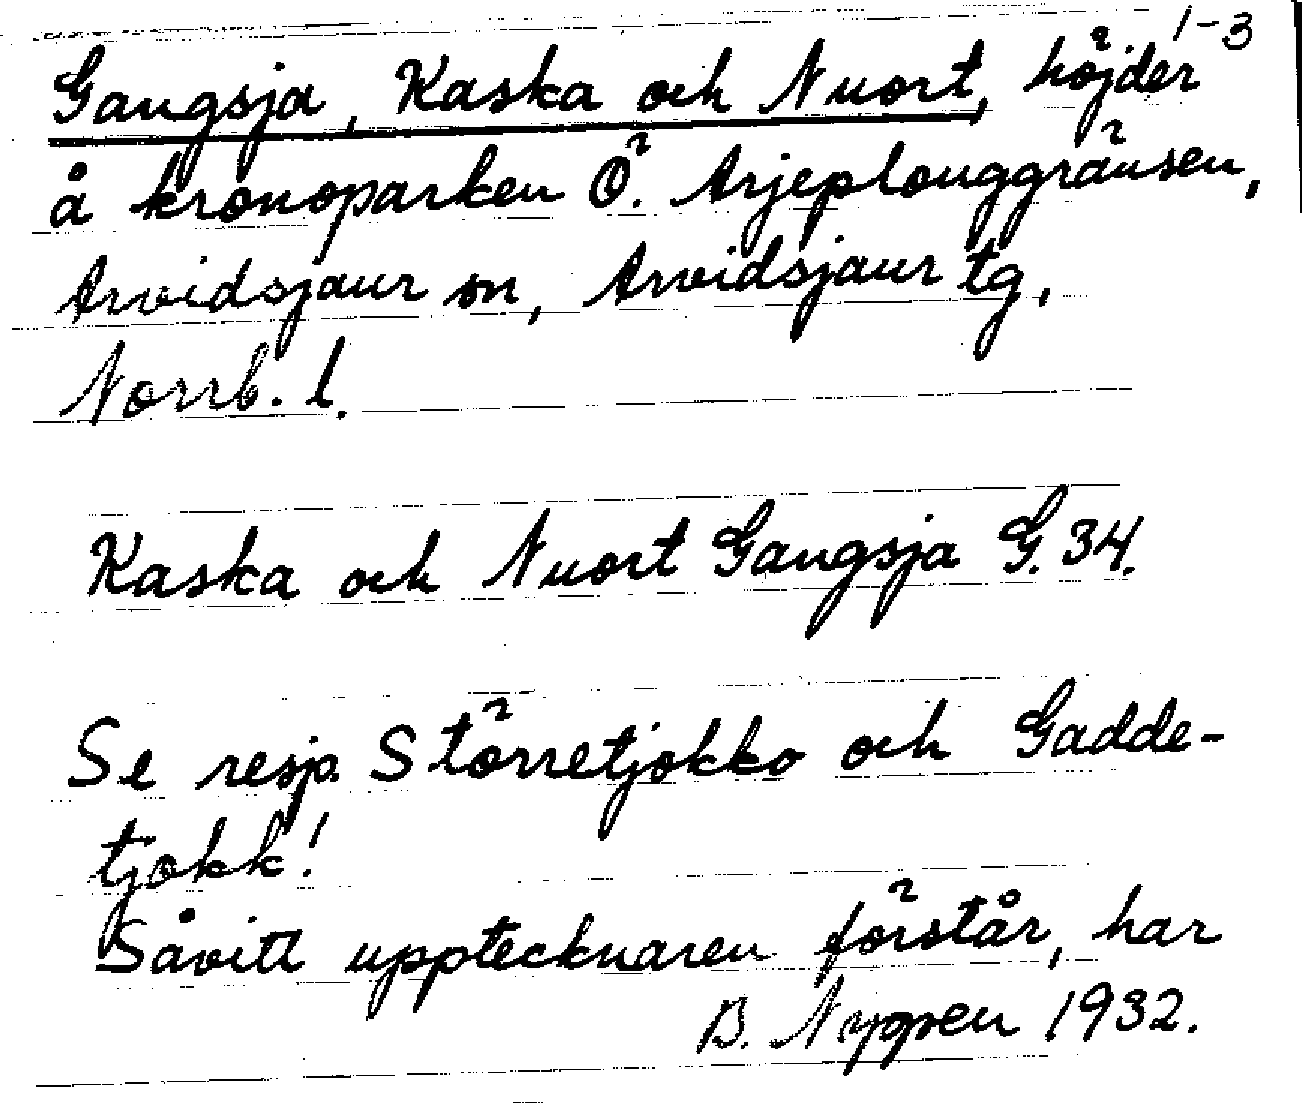 1-3
Gangsja, Kaska och Nuort, höjder
å kronoparken Ö. Arjeplouggränsen,
Arvidsjaur sn, Arvidsjaur tg,
Norrb. l.
Kaska och Nuort Gangsja G. 34.
Se resp. Störretjokko och Gadde-
tjokk!
Såvitt upptecknaren förstår, har
B. Nygren 1932.